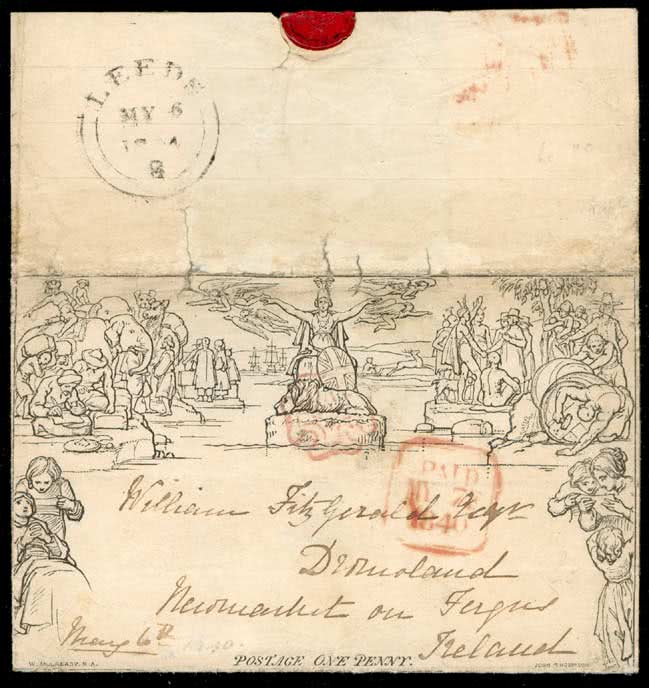 LEEDS
MY 6
8
PAID
MY 7
1840
William FitzGerald Esqr
Dromoland
Newmarket on Fergus
Ireland
May 6th
W. MULREADY. R.A.
POSTAGE ONE PENNY.
JOHN THOMPSON